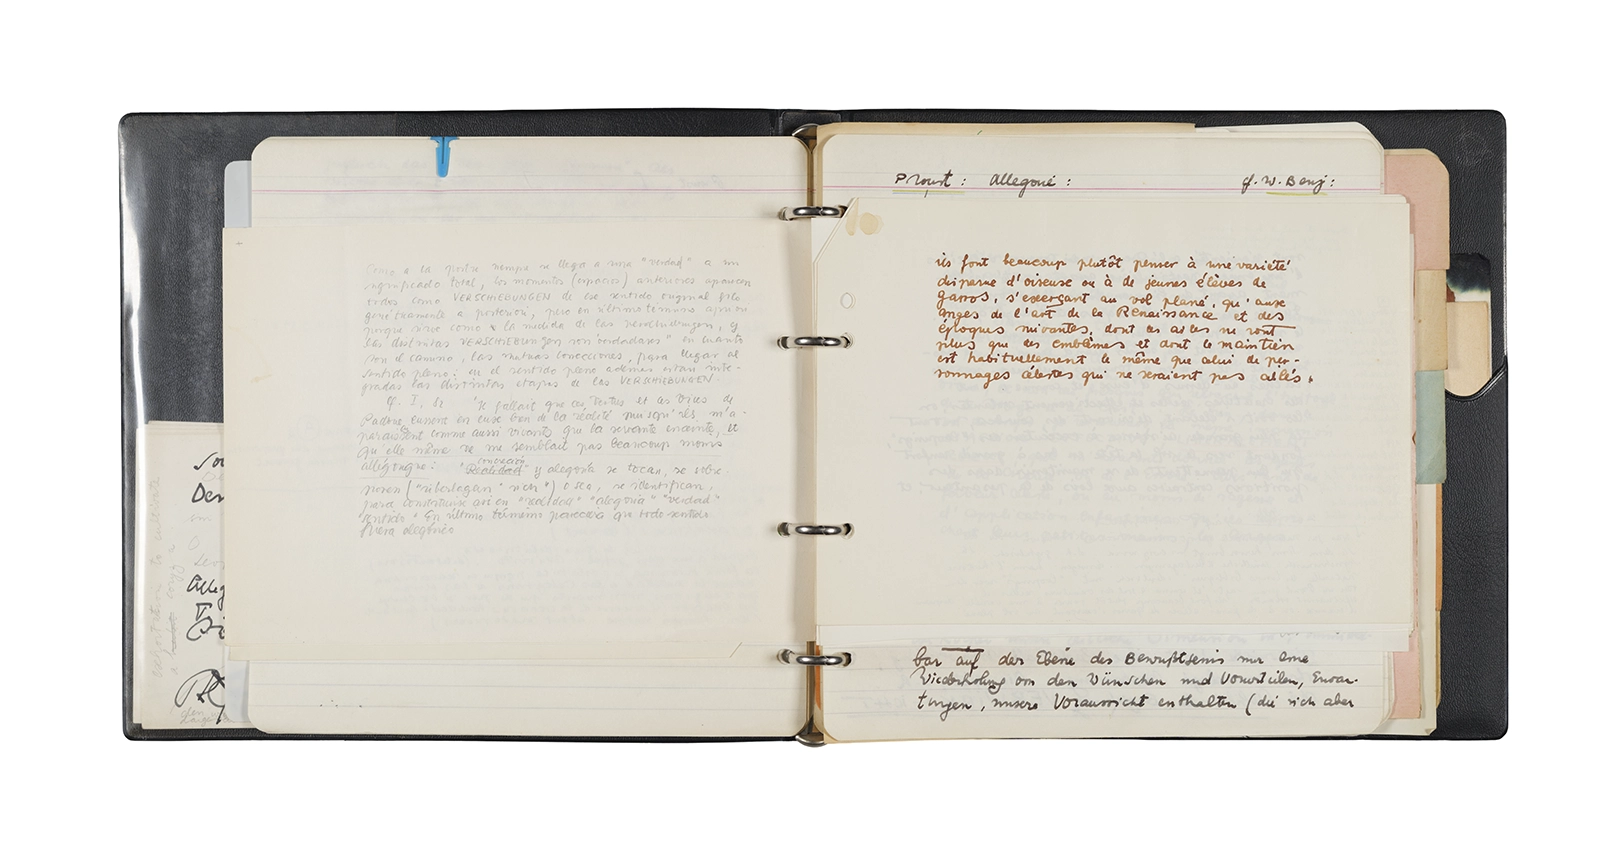 Sou
Den
Alleg
Como a la postre siempre se llega a una "verdad" a un
significado total, los momentos (espacios) anteriores aparecen
todos como VERSCHIEBUNGEN de ese sentido original filo
genéticamente a posteriori, pero en último término apriori
porque sirve como la medida de las y
las distintas VERSCHIEBUNGEN son verdaderas" en cuanto
son el camino, las mutuas conecciones, para llegar al
sentido pleno: en el sentido pleno además estan inte-
gradas las distintas etapas de las VERSCHIEBUNGEN.
cf. I, 82 "Il fallait que ces Vertus et ces Vices de
Padoue eussent en eux bien de la réalité puisqu'ils m'a-
paraissent comme aussi vivants que la servante enceinte, et
qu'elle même ne me semblait pas beaucoup moins
allégorique: concreción
"Realidad" y alegoría se tocan, se sobre
ponen ("überlagern sich") o sea, se identifican,
para constituirse así en "realidad" "alegoría" "verdad"
sentido. En último término parecería que todo sentido
fuera alegórico
Proust: Allegorie: cf. W. Benj:
ils font beaucoup plutôt penser à une variété
disparue d'oiseaux ou à de jeunes élèves de
Garros, s'exerçant au vol plané, qu'aux
anges de l'art de la Renaissance et des
époques suivantes, dont les ailes ne sont
plus que des emblèmes et dont le maintien
est habituellement le même que celui de per-
sonnages célestes qui ne seraient pas ailés.
bar auf der Ebene des Bewußtseins nur eine
Wiederholung von den Wünschen und Vorurteilen, Erwar-
tungen, unsere Voraussicht enthalten (die sich aber